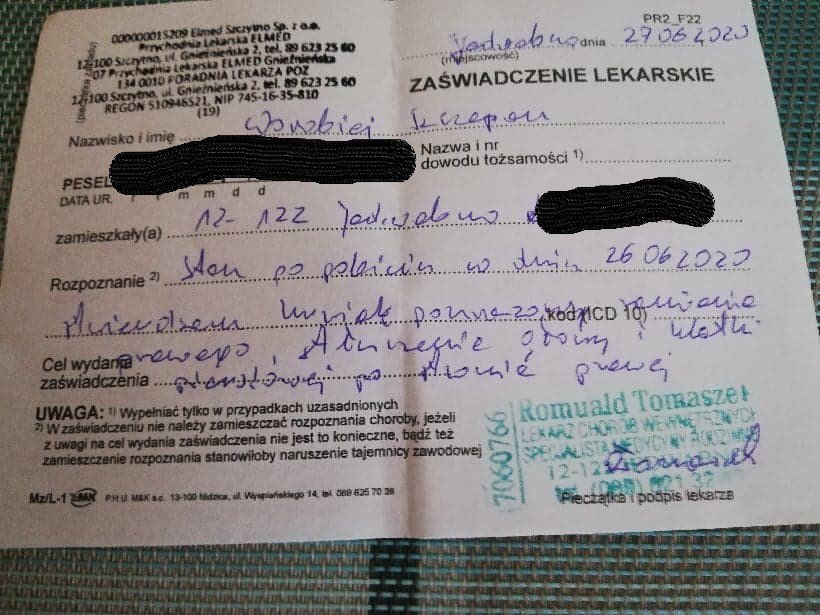 000000015209 Elmed Szczytno Sp. z o.o.
Przychodnia Lekarska ELMED
12-100 Szczytno, ul. Gnieźnieńska 2, tel. 89 623 25 60
07 Przychodnia Lekarska ELMED Gnieźnieńska
134 0010 PORADNIA LEKARZA POZ
12-100 Szczytno, ul. Gnieźnieńska 2, tel. 89 623 25 60
REGON 510946521, NIP 745-16-35-810
(19)
PR2_F22
Jedwabno dnia 29 06 2020
(miejscowość)
ZAŚWIADCZENIE LEKARSKIE
Nazwisko i imię Szczepan
Nazwa i nr
dowodu tożsamości 1)
PESEL
DATA UR. r r m m d d
zamieszkały(a) 12-122 Jedwabno
Rozpoznanie 2) Stan po pobiciu w dniu 26 06 2020
Stwierdzam (kod ICD 10) ramienia
prawego, Stłuczenie głowy i klatki
Cel wydania
zaświadczenia piersiowej po stronie prawej
UWAGA: 1) Wypełniać tylko w przypadkach uzasadnionych
2) W zaświadczeniu nie należy zamieszczać rozpoznania choroby, jeżeli
z uwagi na cel wydania zaświadczenia nie jest to konieczne, bądź też
zamieszczenie rozpoznania stanowiłoby naruszenie tajemnicy zawodowej
7060766
Romuald Tomaszew
LEKARZ CHORÓB WEWNĘTRZNYCH
SPECJALISTA MEDYCYNY RODZINNEJ
Pieczątka i podpis lekarza
Mz/L-1 M&K P.H.U. M&K s.c. 13-100 Nidzica, ul. Wyspiańskiego 14, tel. 089 625 70 26